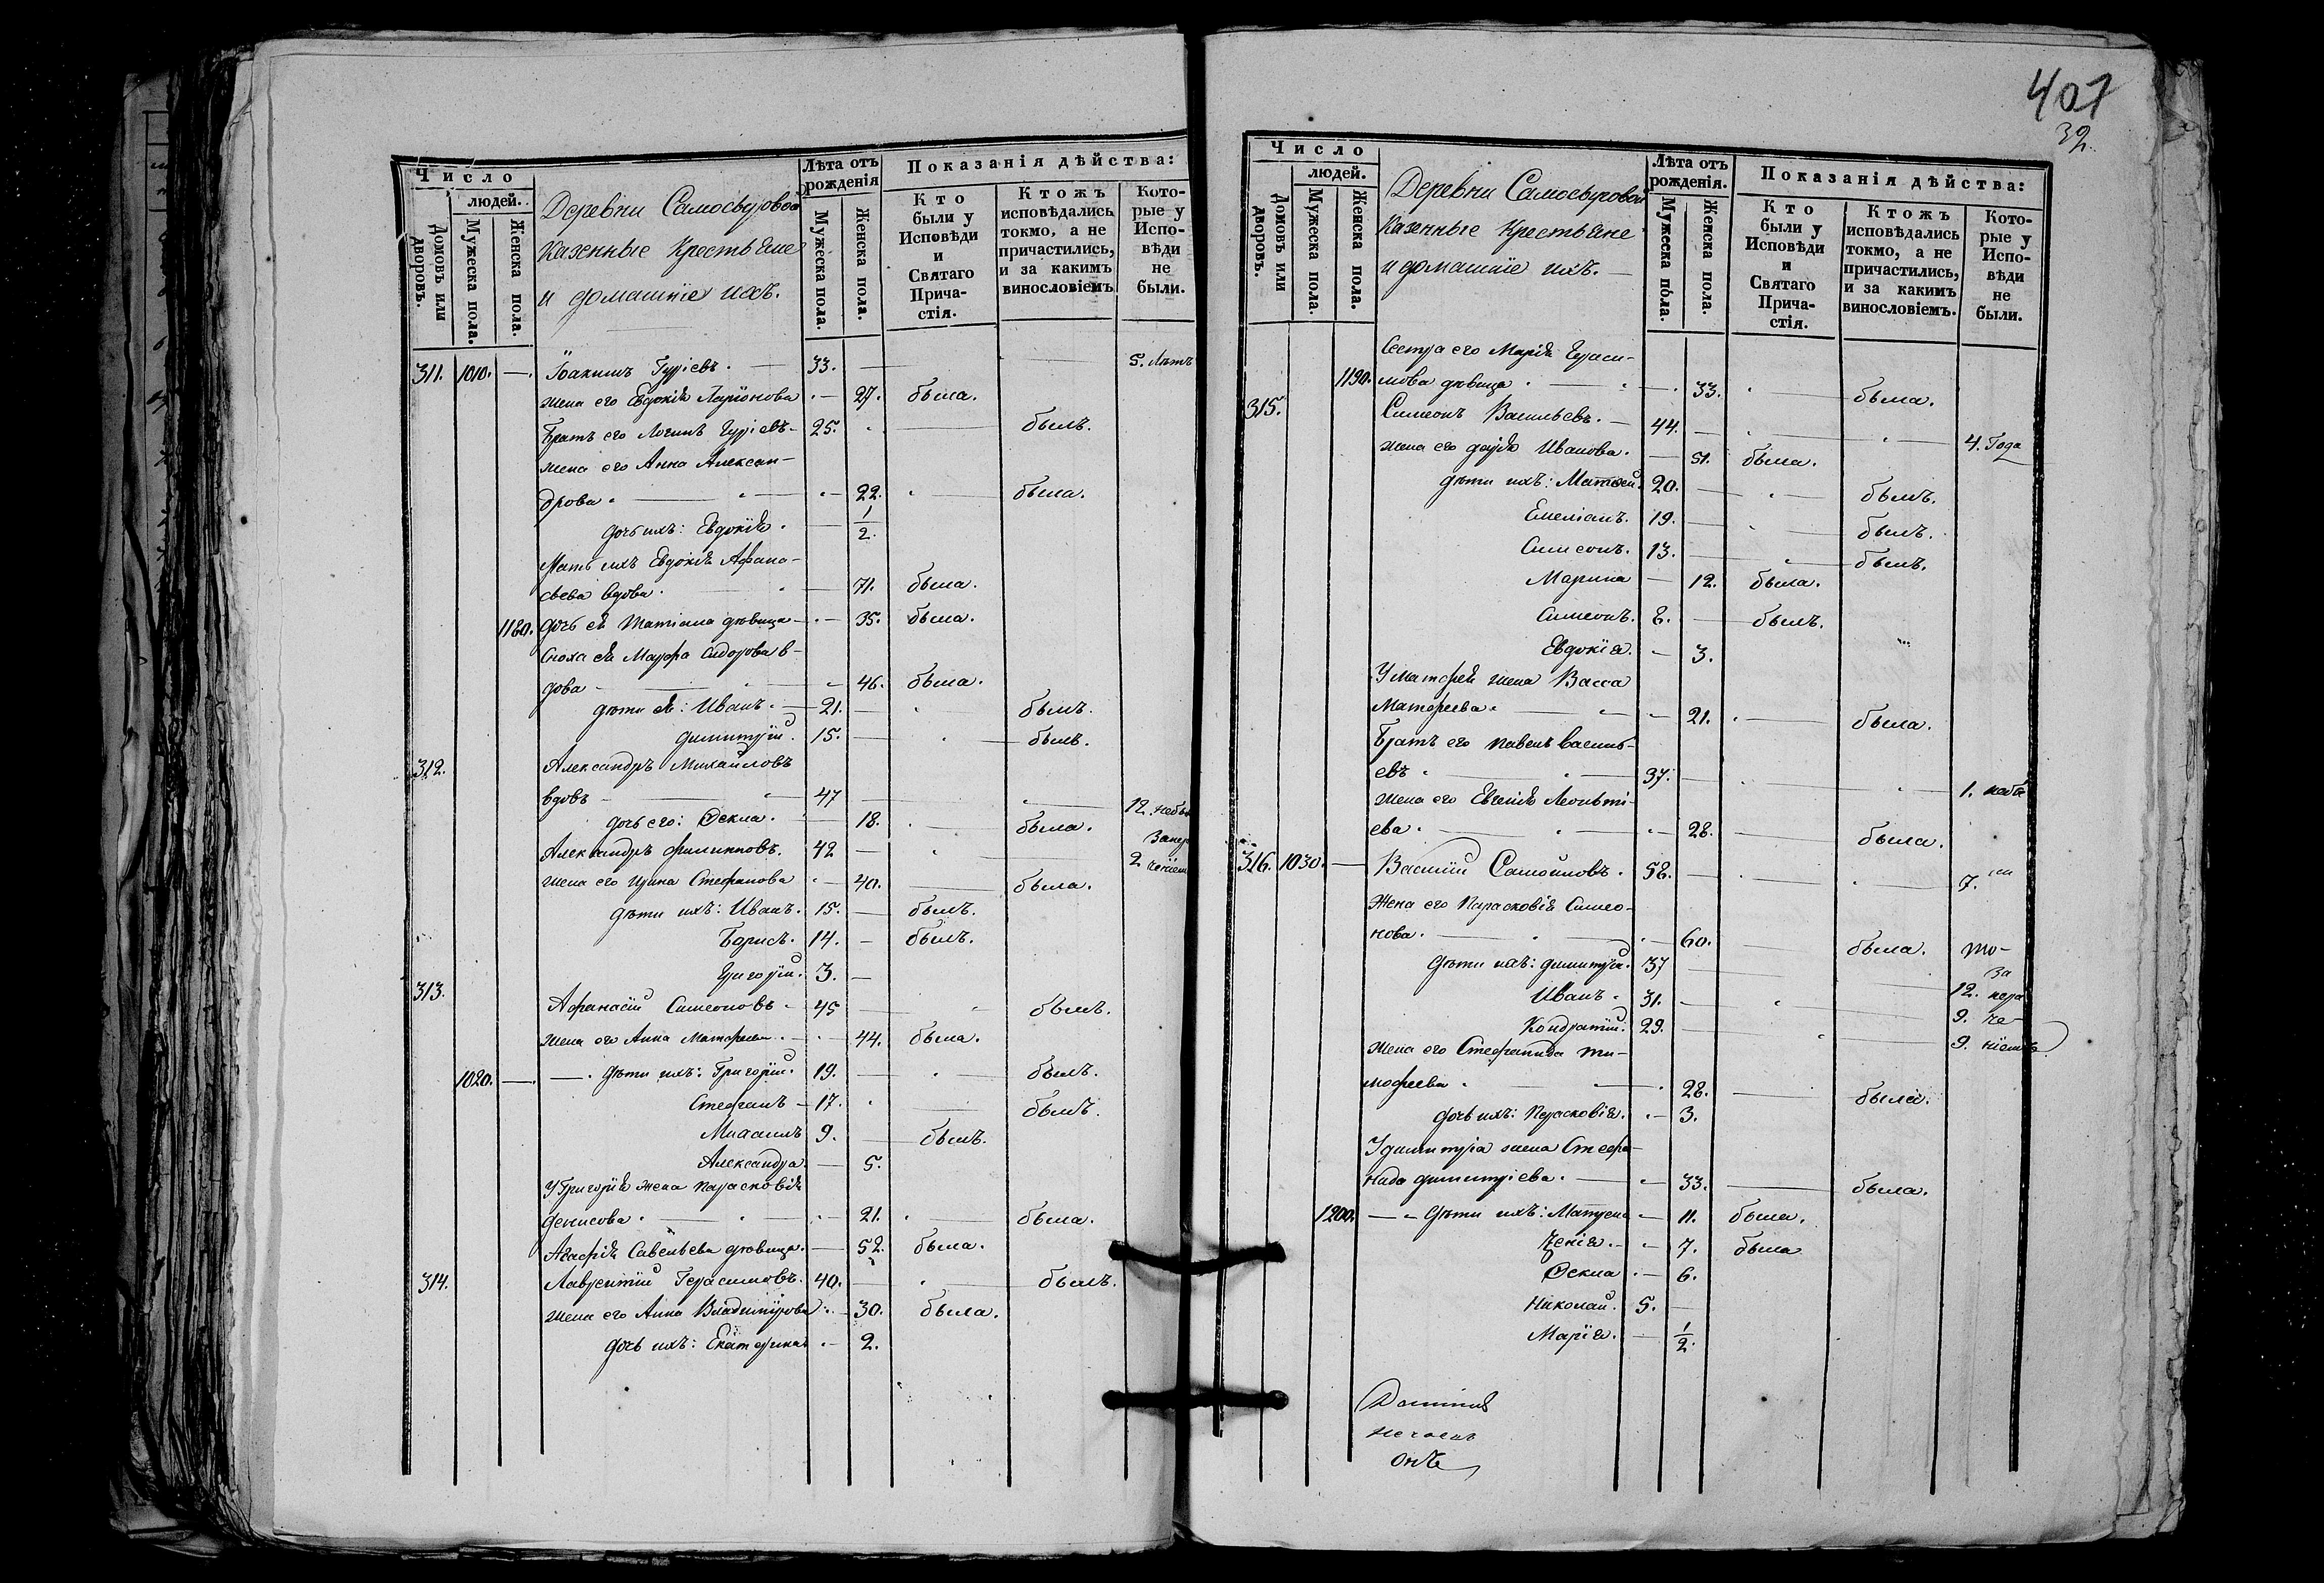 407
32
Число
людей.
Домовъ или дворовъ.
Мужеска пола.
Женска пола.
Деревни
Казенные Крестьяне
и домашніе ихъ.
Лѣта отъ рожденія
Мужеска пола.
Женска пола.
Показанія дѣйства:
Кто были у Исповѣди и Святаго Прича-стія.
Ктожъ исповѣдались токмо, а не причастились, и за какимъ винословіемъ
Кото-рые у Испо-вѣди не были.
311. 1010. — Іоакимъ Гуріевъ. 33. — 5. лѣтъ
жена его Евдокія Ларіонова — 27. была.
Братъ его Логинъ Гуріевъ 25. былъ.
жена его Анна Алексан-
дрова 22. была.
дочь ихъ: Евдокія. 1/2.
Мать ихъ Евдокія Афана-
сьева вдова. 71. была.
1180. дочь ея Татіана дѣвица 35. была.
Сноха ея Марфа Сидорова в-
дова 46. была.
дѣти ея: Иванъ. 21. былъ.
Димитрій. 15. былъ.
312. Александръ Михайловъ
вдовъ 47 12.
дочь его: Ѳекла. 18. была.
Александръ Филипповъ. 42 2
жена его Ирина Стефанова 40. была.
дѣти ихъ: Иванъ. 15. былъ.
Борисъ. 14. былъ.
Григорій. 3.
313. Афанасій Симеоновъ 45 былъ.
жена его Анна Матфеева 44. была.
1020. — дѣти ихъ: Григорій. 19. былъ.
Стефанъ 17. былъ.
Михаилъ 9. былъ.
Александра 5.
У Григорія жена Парасковія
Денисова 21. была.
Агафія Савельева дѣвица. 52. была.
314. Лаврентій Герасимовъ. 40. былъ.
жена его Анна Владимірова 30. была.
дочь ихъ: Екатерина 2.
Число
людей.
Домовъ или дворовъ.
Мужеска пола.
Женска пола.
Деревни
Казенные Крестьяне
и домашніе ихъ.
Лѣта отъ рожденія.
Мужеска пола.
Женска пола.
Показанія дѣйства:
Кто были у Исповѣди и Святаго Прича-стія.
Ктожъ исповѣдались токмо, а не причастились, и за какимъ винословіемъ.
Кото-рые у Испо-вѣди не были.
Сестра его Марія Гераси-
1190. мова дѣвица 33. была.
315. Симеонъ Васильевъ. 44. 4. Года
жена его Дарія Иванова. 51. была.
дѣти ихъ: Матѳей. 20. былъ.
Емеліанъ. 19. былъ.
Симеонъ. 13. былъ.
Марина 12. была.
Симеонъ. 8. былъ.
Евдокія. 3.
У Матфея жена Васса
Матфеева. 21. была.
Братъ его Павелъ Василь-
евъ 37. 1.
жена его Евгенія Леонті-
ева. 28. была.
316. 1030. — Василій Самойловъ. 58. 7.
Жена его Параскевія Симео-
нова. 60. была. то-
дѣти ихъ: Димитрій. 37 12. за
Иванъ. 31. 9. нера
Кондратій. 29. 9. че-
ніемъ
жена его Стефанида Ти-
мофеева 28. была.
дочь ихъ: Парасковія. 3.
У Димитрія жена Стефа-
нида Димитріева. 33. была.
1200. — дѣти ихъ: Матрена 11. была.
Ксенія. 7. была
Ѳекла 6.
Николай. 5.
Марія. 1/2.